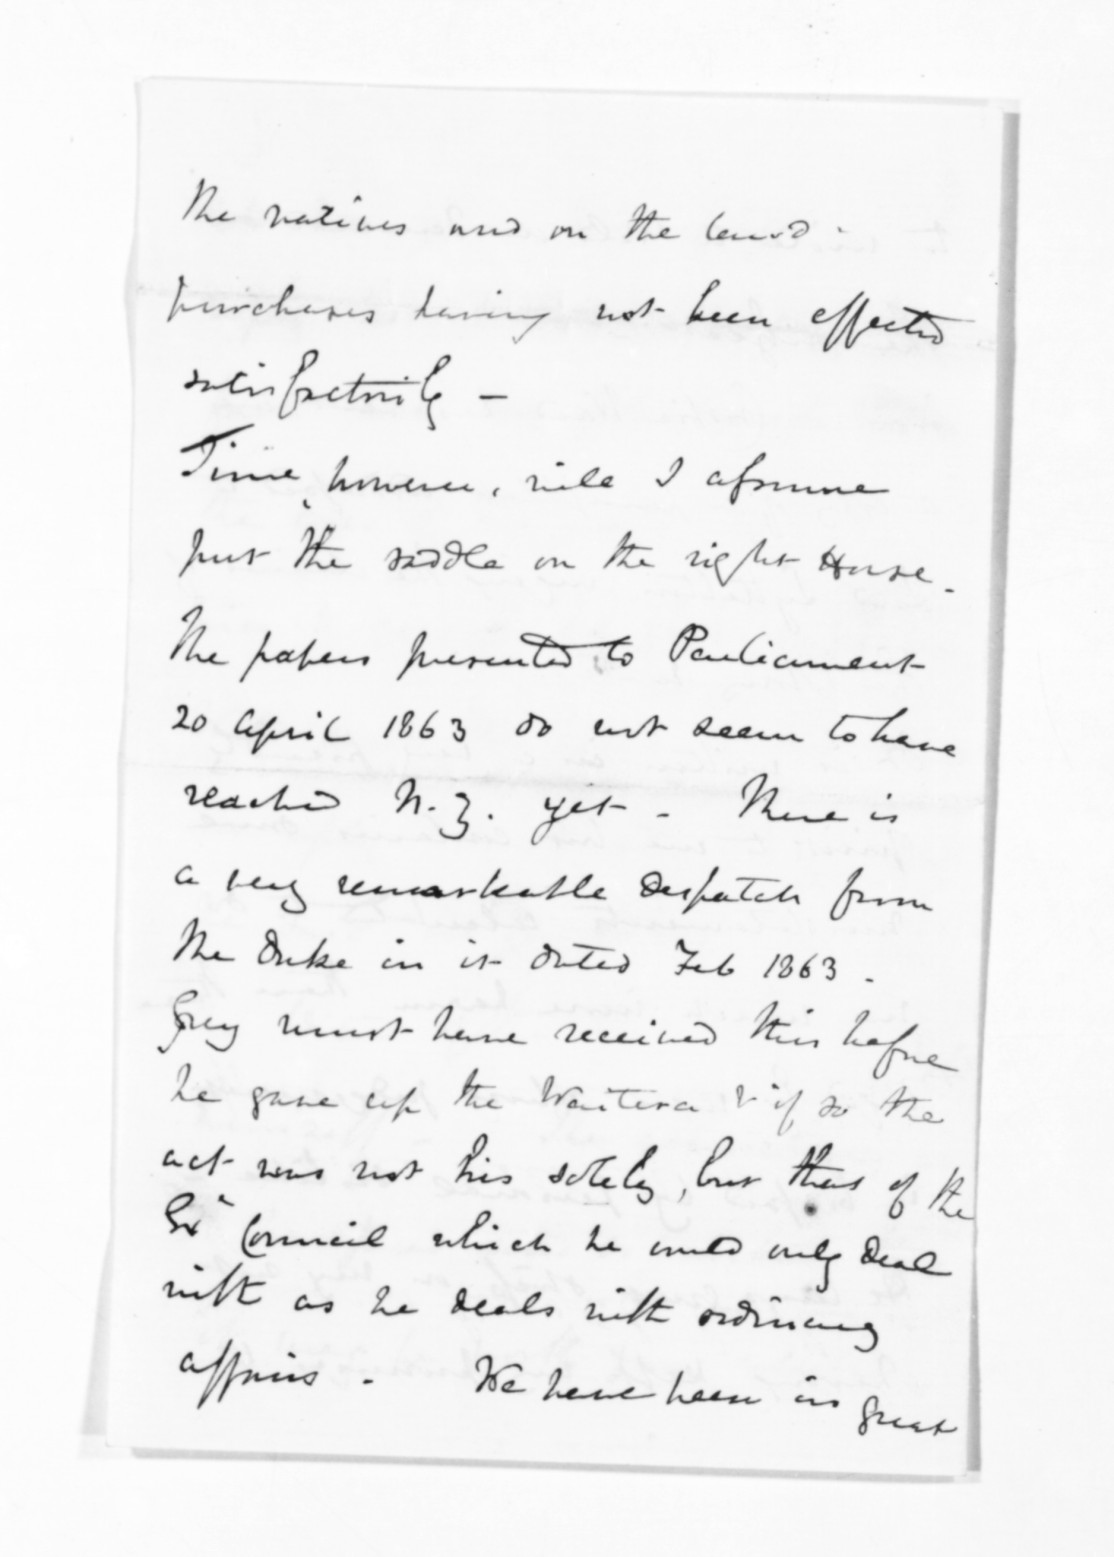 the natives and on the land
purchases having not been effected
satisfactorily –
Time, however, will I assume
put the saddle on the right Horse.
The papers presented to Parliament
20 April 1863 do not seem to have
reached N.Z. yet - There is
a very remarkable despatch from
the Duke in it dated Feb 1863.
Grey must have received this before
he gave up the Waitera & if so the
act was not his solely, but that of the
Ex Council which he could only deal
with as he deals with ordinary
affairs. We have been in great